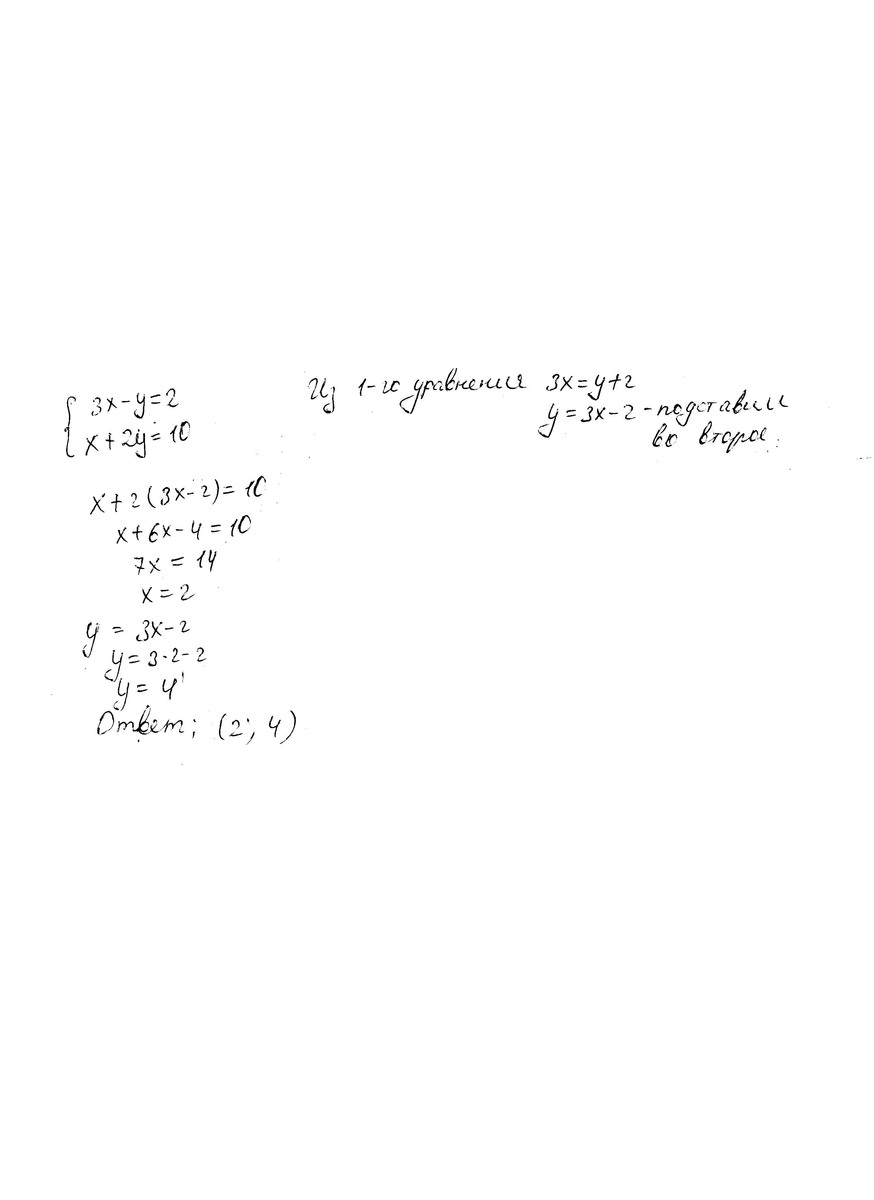 { 3x-y=2
x+2y=10
Из 1-го уравнения 3x=y+2
y=3x-2 - подставим
во второе.
x+2(3x-2)=10
x+6x-4=10
7x=14
x=2
y=3x-2
y=3·2-2
y=4
Ответ: (2; 4)